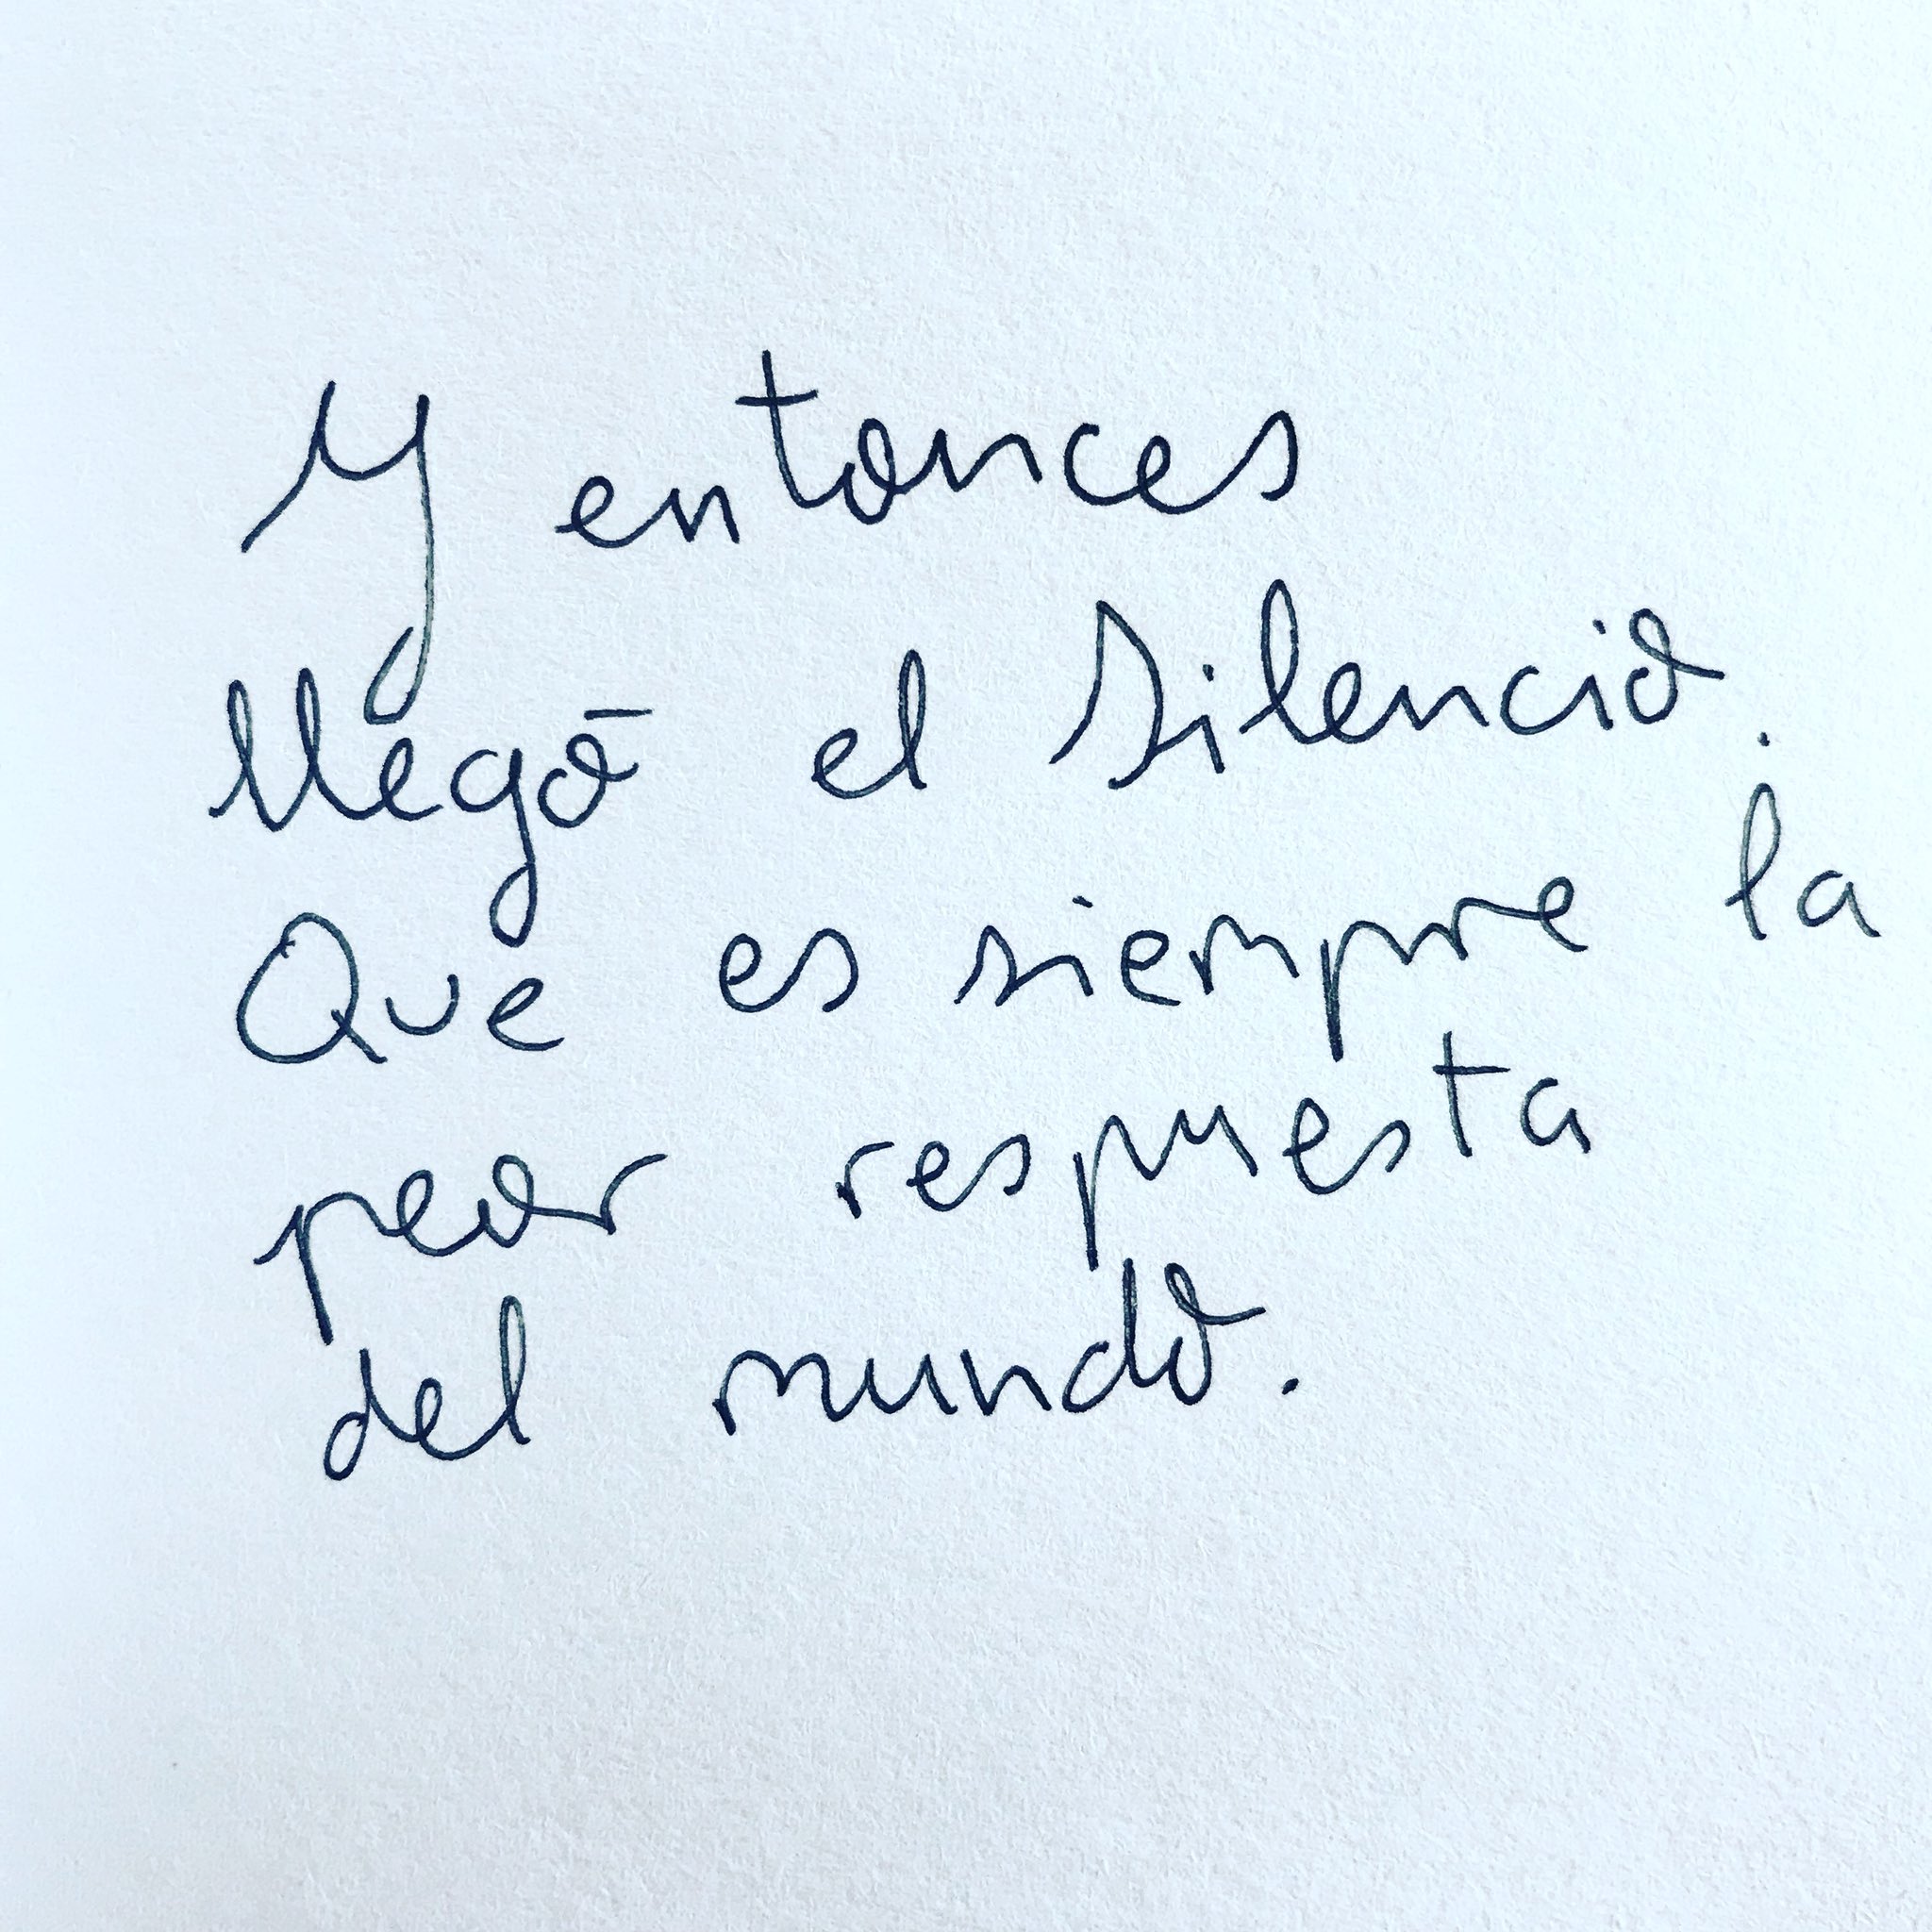 Y entonces
llegó el silencio.
Que es siempre la
peor respuesta
del mundo.